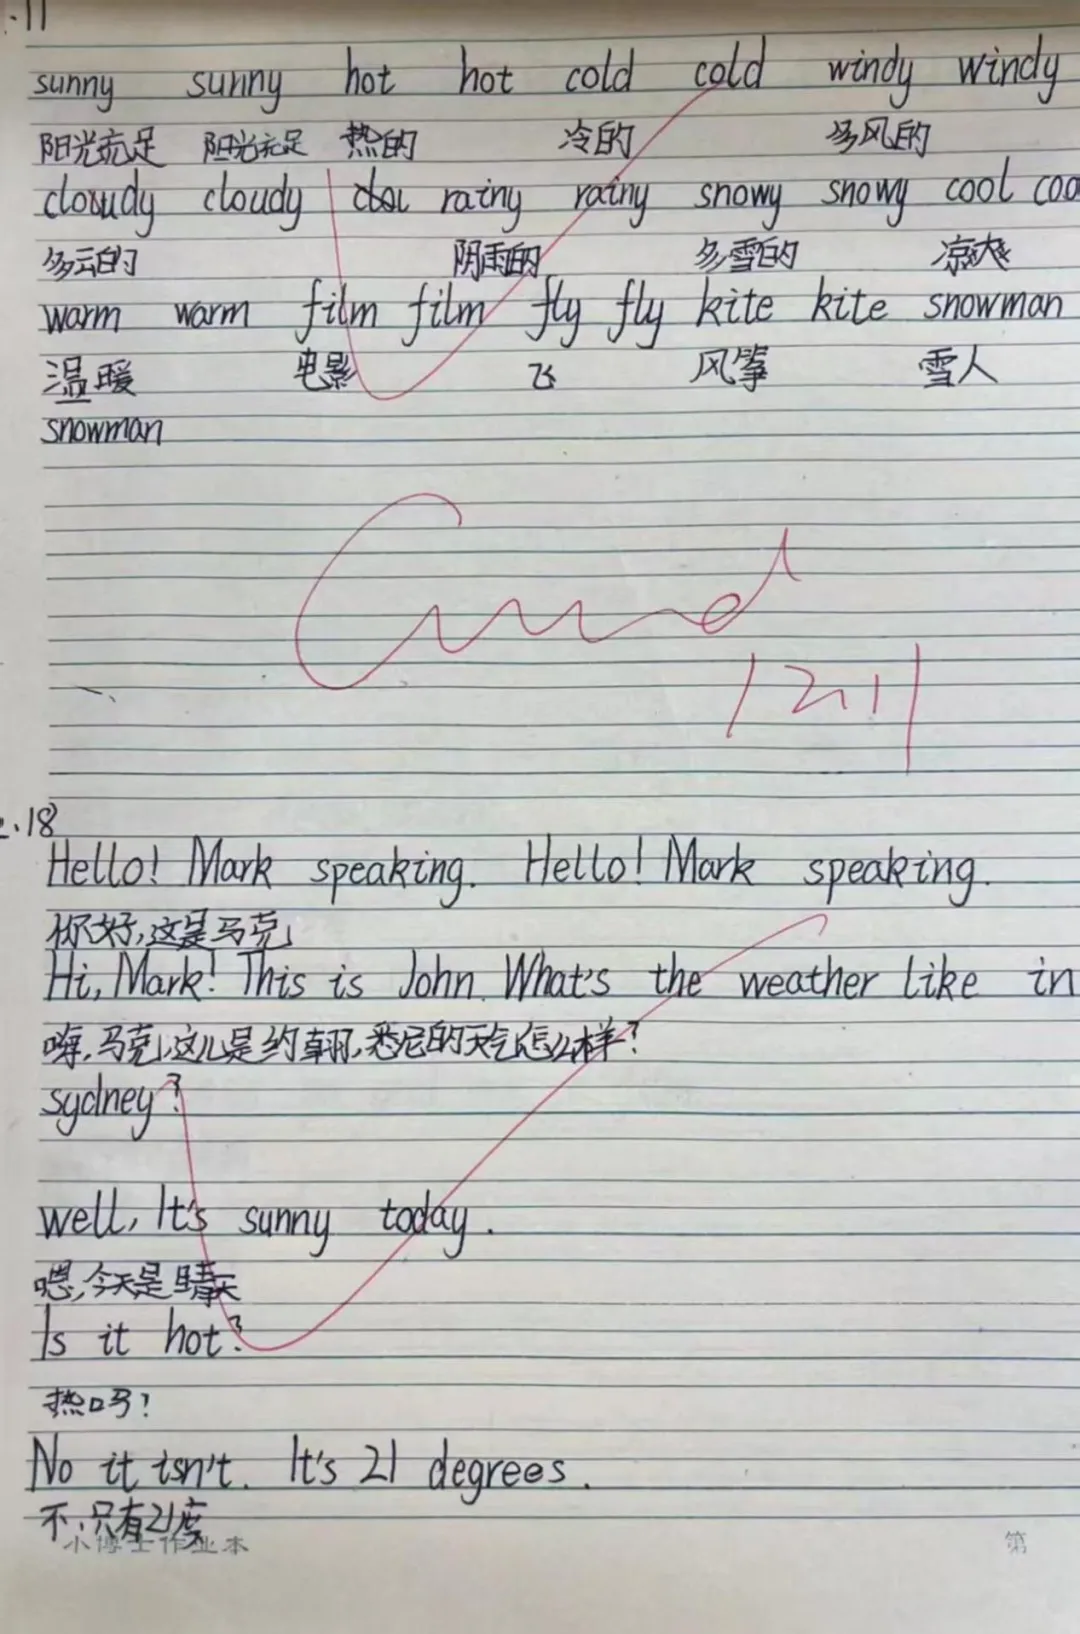 .11
sunny sunny hot hot cold cold windy windy
阳光充足 阳光充足 热的 冷的 多风的
cloudy cloudy rainy rainy snowy snowy cool coo
多云的 阴雨的 多雪的 凉爽
warm warm film film fly fly kite kite snowman
温暖 电影 飞 风筝 雪人
snowman
Good
12.11
2.18
Hello! Mark speaking. Hello! Mark speaking.
你好,这是马克
Hi, Mark! This is John. What's the weather like in
嗨,马克,这儿是约翰,悉尼的天气怎么样?
sydney?
well, It's sunny today.
嗯,今天是晴天
Is it hot?
热吗?
No it isn't. It's 21 degrees.
不,只有21度
小博士作业本 第